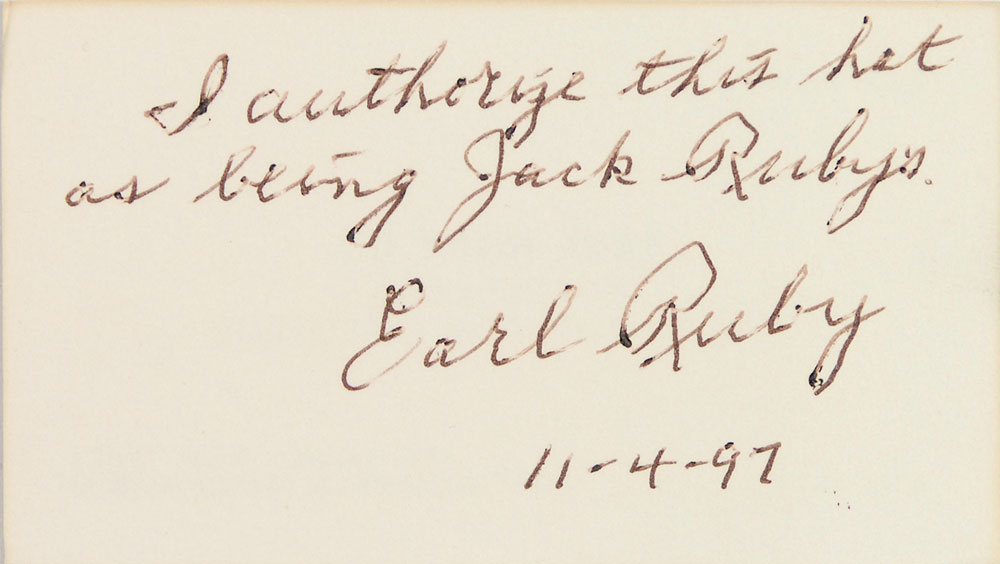 I authorize this hat
as being Jack Rubys.
Earl Ruby
11-4-97